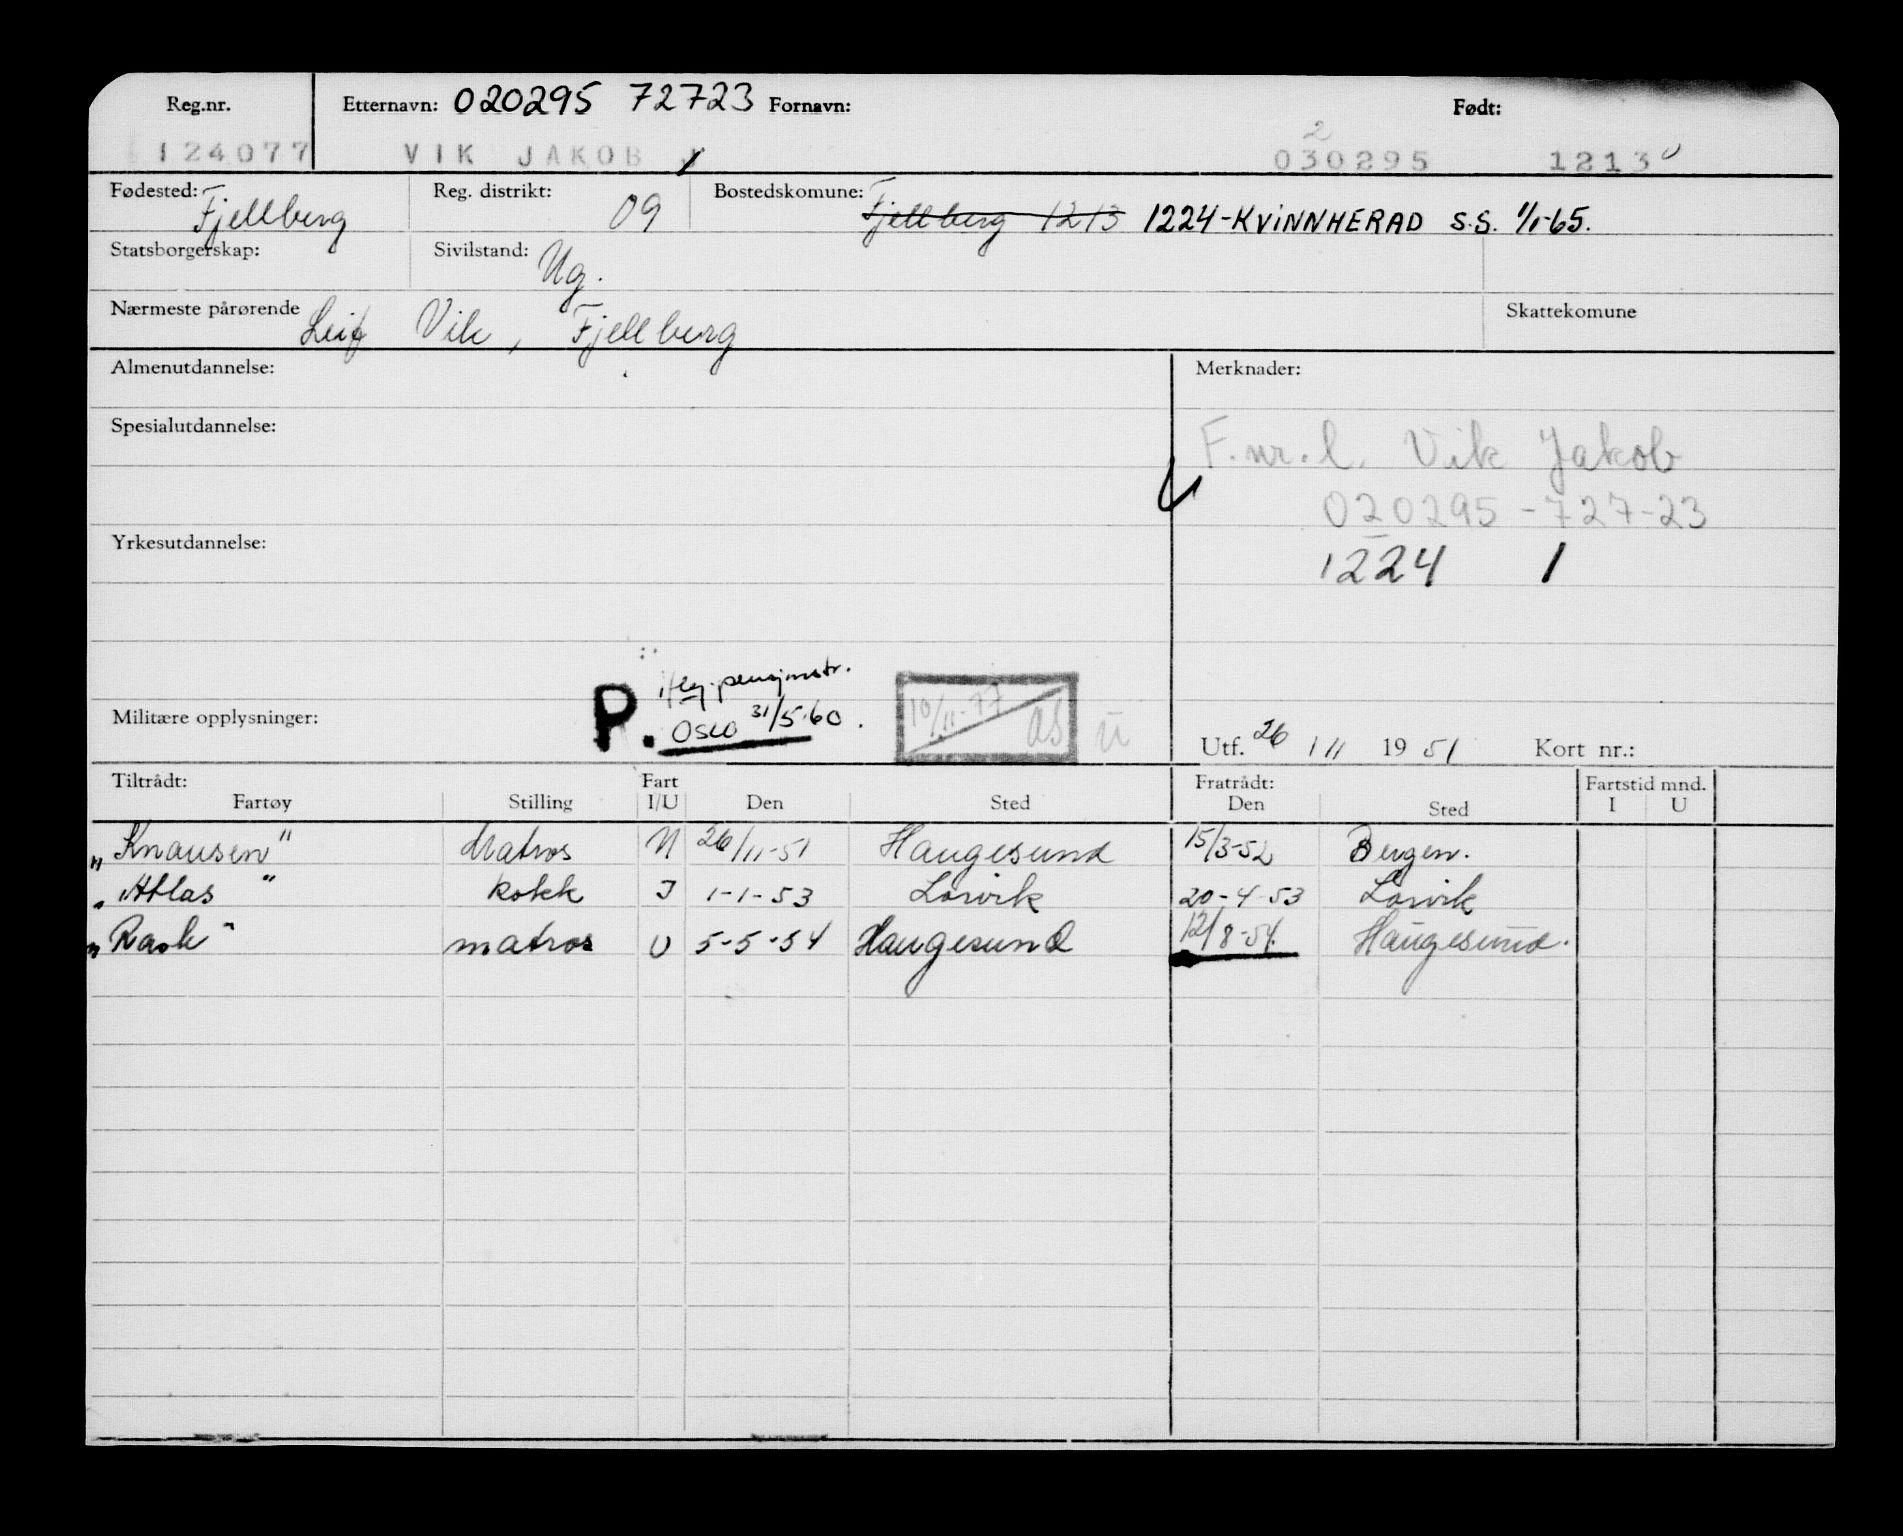 Reg.nr. Etternavn: 020295 72723 Fornavn: Født:
2
124077 VIK JAKOB J 030295 1213 0
Fødested: Fjellberg Reg. distrikt: 09 Bostedskomune: Fjellberg 1213 1224-KVINNHERAD S.S. 1/1-65.
Statsborgerskap: Sivilstand: Ug.
Nærmeste pårørende Leif Vik, Fjellberg Skattekomune
Almenutdannelse: Merknader:
Spesialutdannelse: F.nr.l. Vik Jakob
020295-727-23
Yrkesutdannelse: 1224 1
P. iflg. pensjonstr.
Oslo 31/5-60. 10/11-77 as u
Militære opplysninger: Utf. 26 / 11 19 51 Kort nr.:
Tiltrådt: Fart Fratrådt: Fartstid mnd.
Fartøy Stilling I/U Den Sted Den Sted I U
"Knausen" Matros U 26/11-51 Haugesund 15/3-52 Bergen.
"Atlas" kokk I 1-1-53 Lorvik 20-4-53 Lorvik
"Rask" matros U 5-5-54 Haugesund 12/8-54. Haugesund.